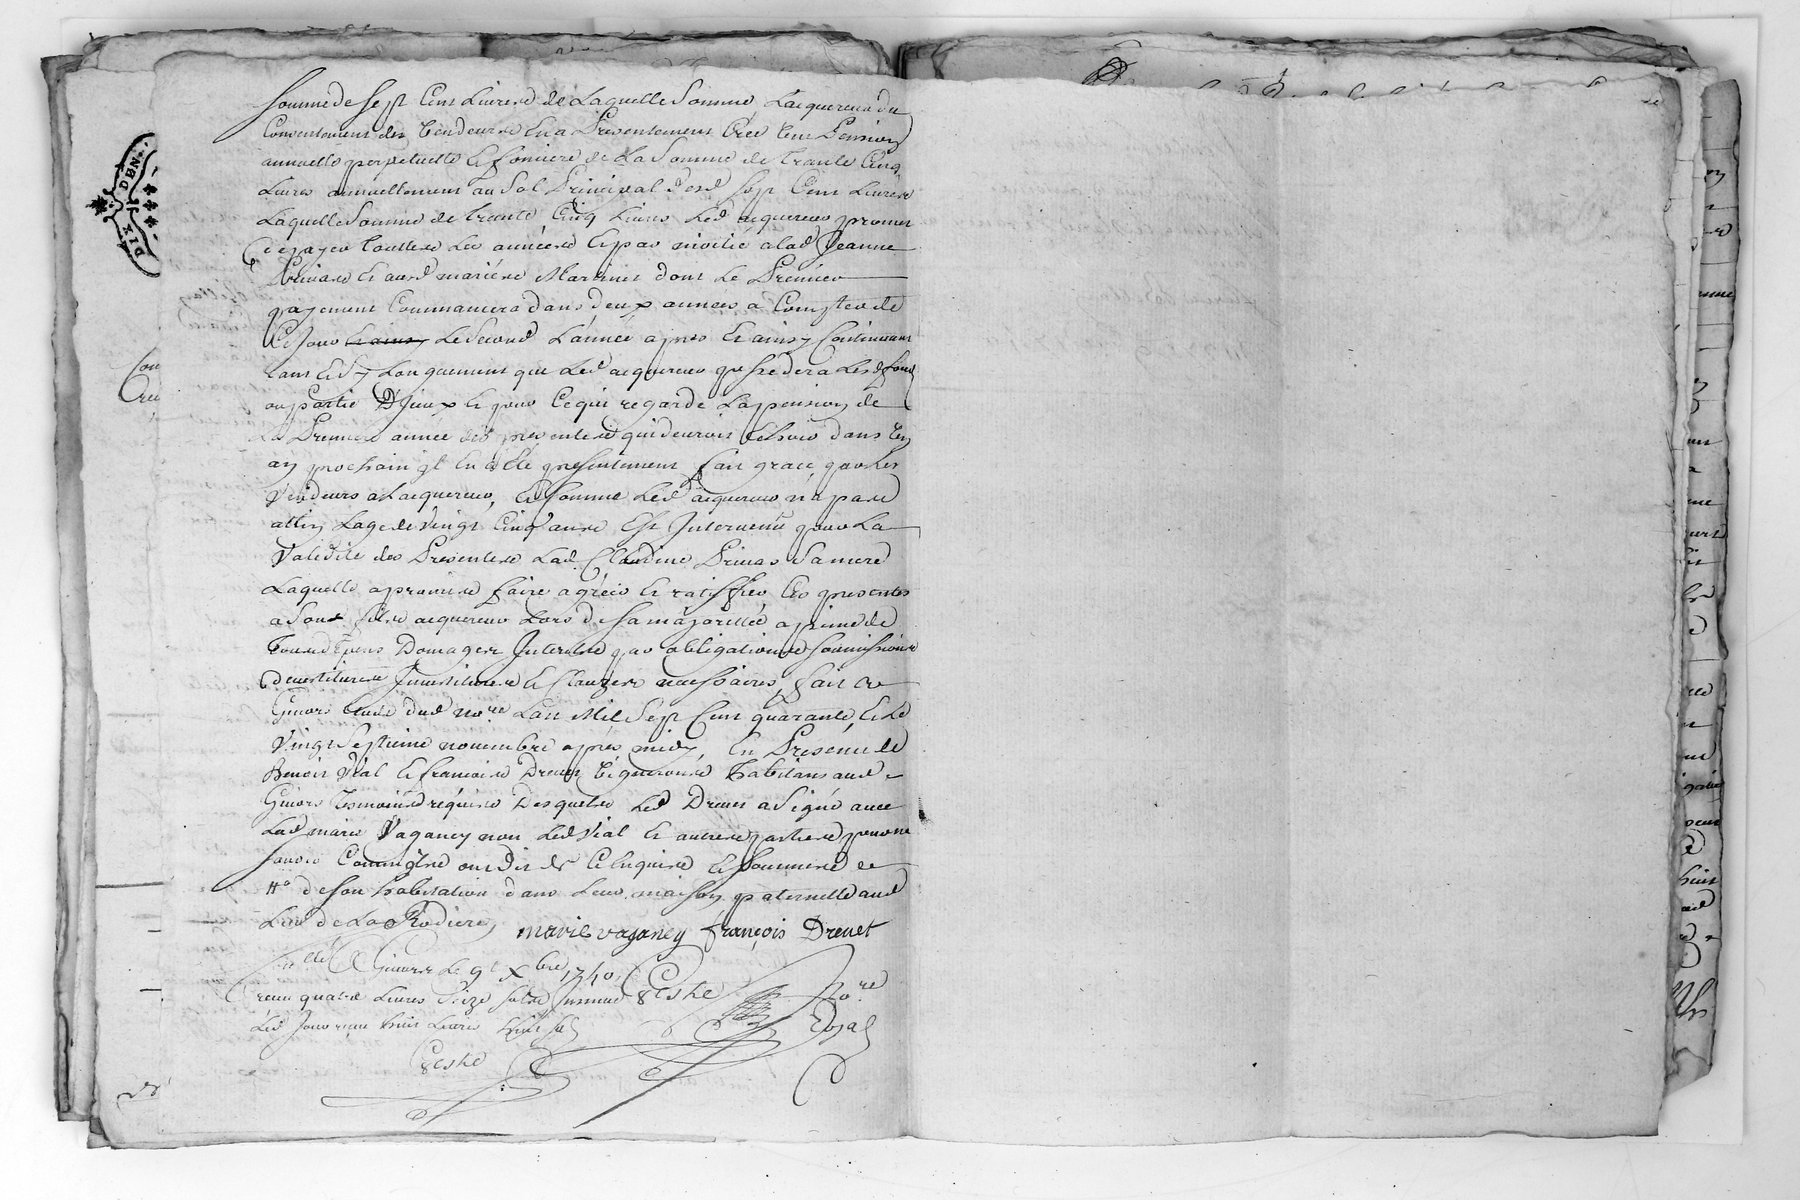 somme de sept Cens Livres de Laquelle Somme Lacquereur du
Consentement des Vendeurs En a Presentement Creé Une Pension
annuelle perpetuelle et fonciere de La Somme de trante Cinq
Livres annuellement au Sol Principal desd sept Cens Livres
Laquelle Somme de trante Cinq Livres Led acquereur promet
de payer touttes Les années et par moitié a lad Jeanne
Privas et aud mariés Martinet dont Le Premier
payement Commancera dans deux années a Compter de
Ce Jour et ainsy Le Second L'année apres et ainsy Continuant
tant et sy Longuement que Led acquereur possedera Lesd fonds
ou partie D'Jeux et pour Ce qui regarde La pension de
La Premiere année des presentes qui devroit Echoir dans Un
an prochain Il En a été presentement fait grace par Les
Vendeurs a Lacquereur, et comme Led acquereur n'a pas
attin Lage de Vingt Cinq ans Est Intervenüe pour La
Validité des Presentes Lad. Claudine Privas Sa mere
Laquelle a promis de faire agréer et ratiffier Les presentes
a Son fils acquereur Lors de sa majorité a peine de
Tous depens Domages Interets par obligations soumissions
devestitures Investitures et Clauzes necessaires, fait a
Givors Etude dud no.re Lan Mil Sept Cens quarante, et Le
Vingt Septieme novembre après midy, En Presence de
Benoit Vial et francois Drevet Vignerons habitans aud
Givors temoins requis Desquels Led Drevet a Signé avec
Lad marie Vaganey non Led Vial et autres parties pour ne
Savoir Comme ont Dit de Ce Enquis et sommés
## de son habitation dans Leur maison paternelle aud
Lieu de La Rodiere
marie vaganey françois Drevet
C.llé A Givors Le 9e Xbre 1740
receu quatre Livres Seize sols Insinué
Led Jour receu huit Livres huit sols
Beshe
No.re
Royal
Beshe
DIX DEN